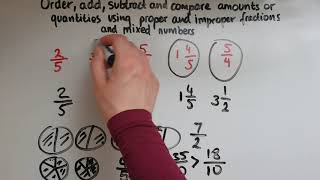 Order, add, subtract and compare amounts or
quantities using proper and improper fractions
and mixed numbers
2/5 5 1 4/5 5/4
2/5 1 4/5 3 1/2
7/2
35/10 > 18/10